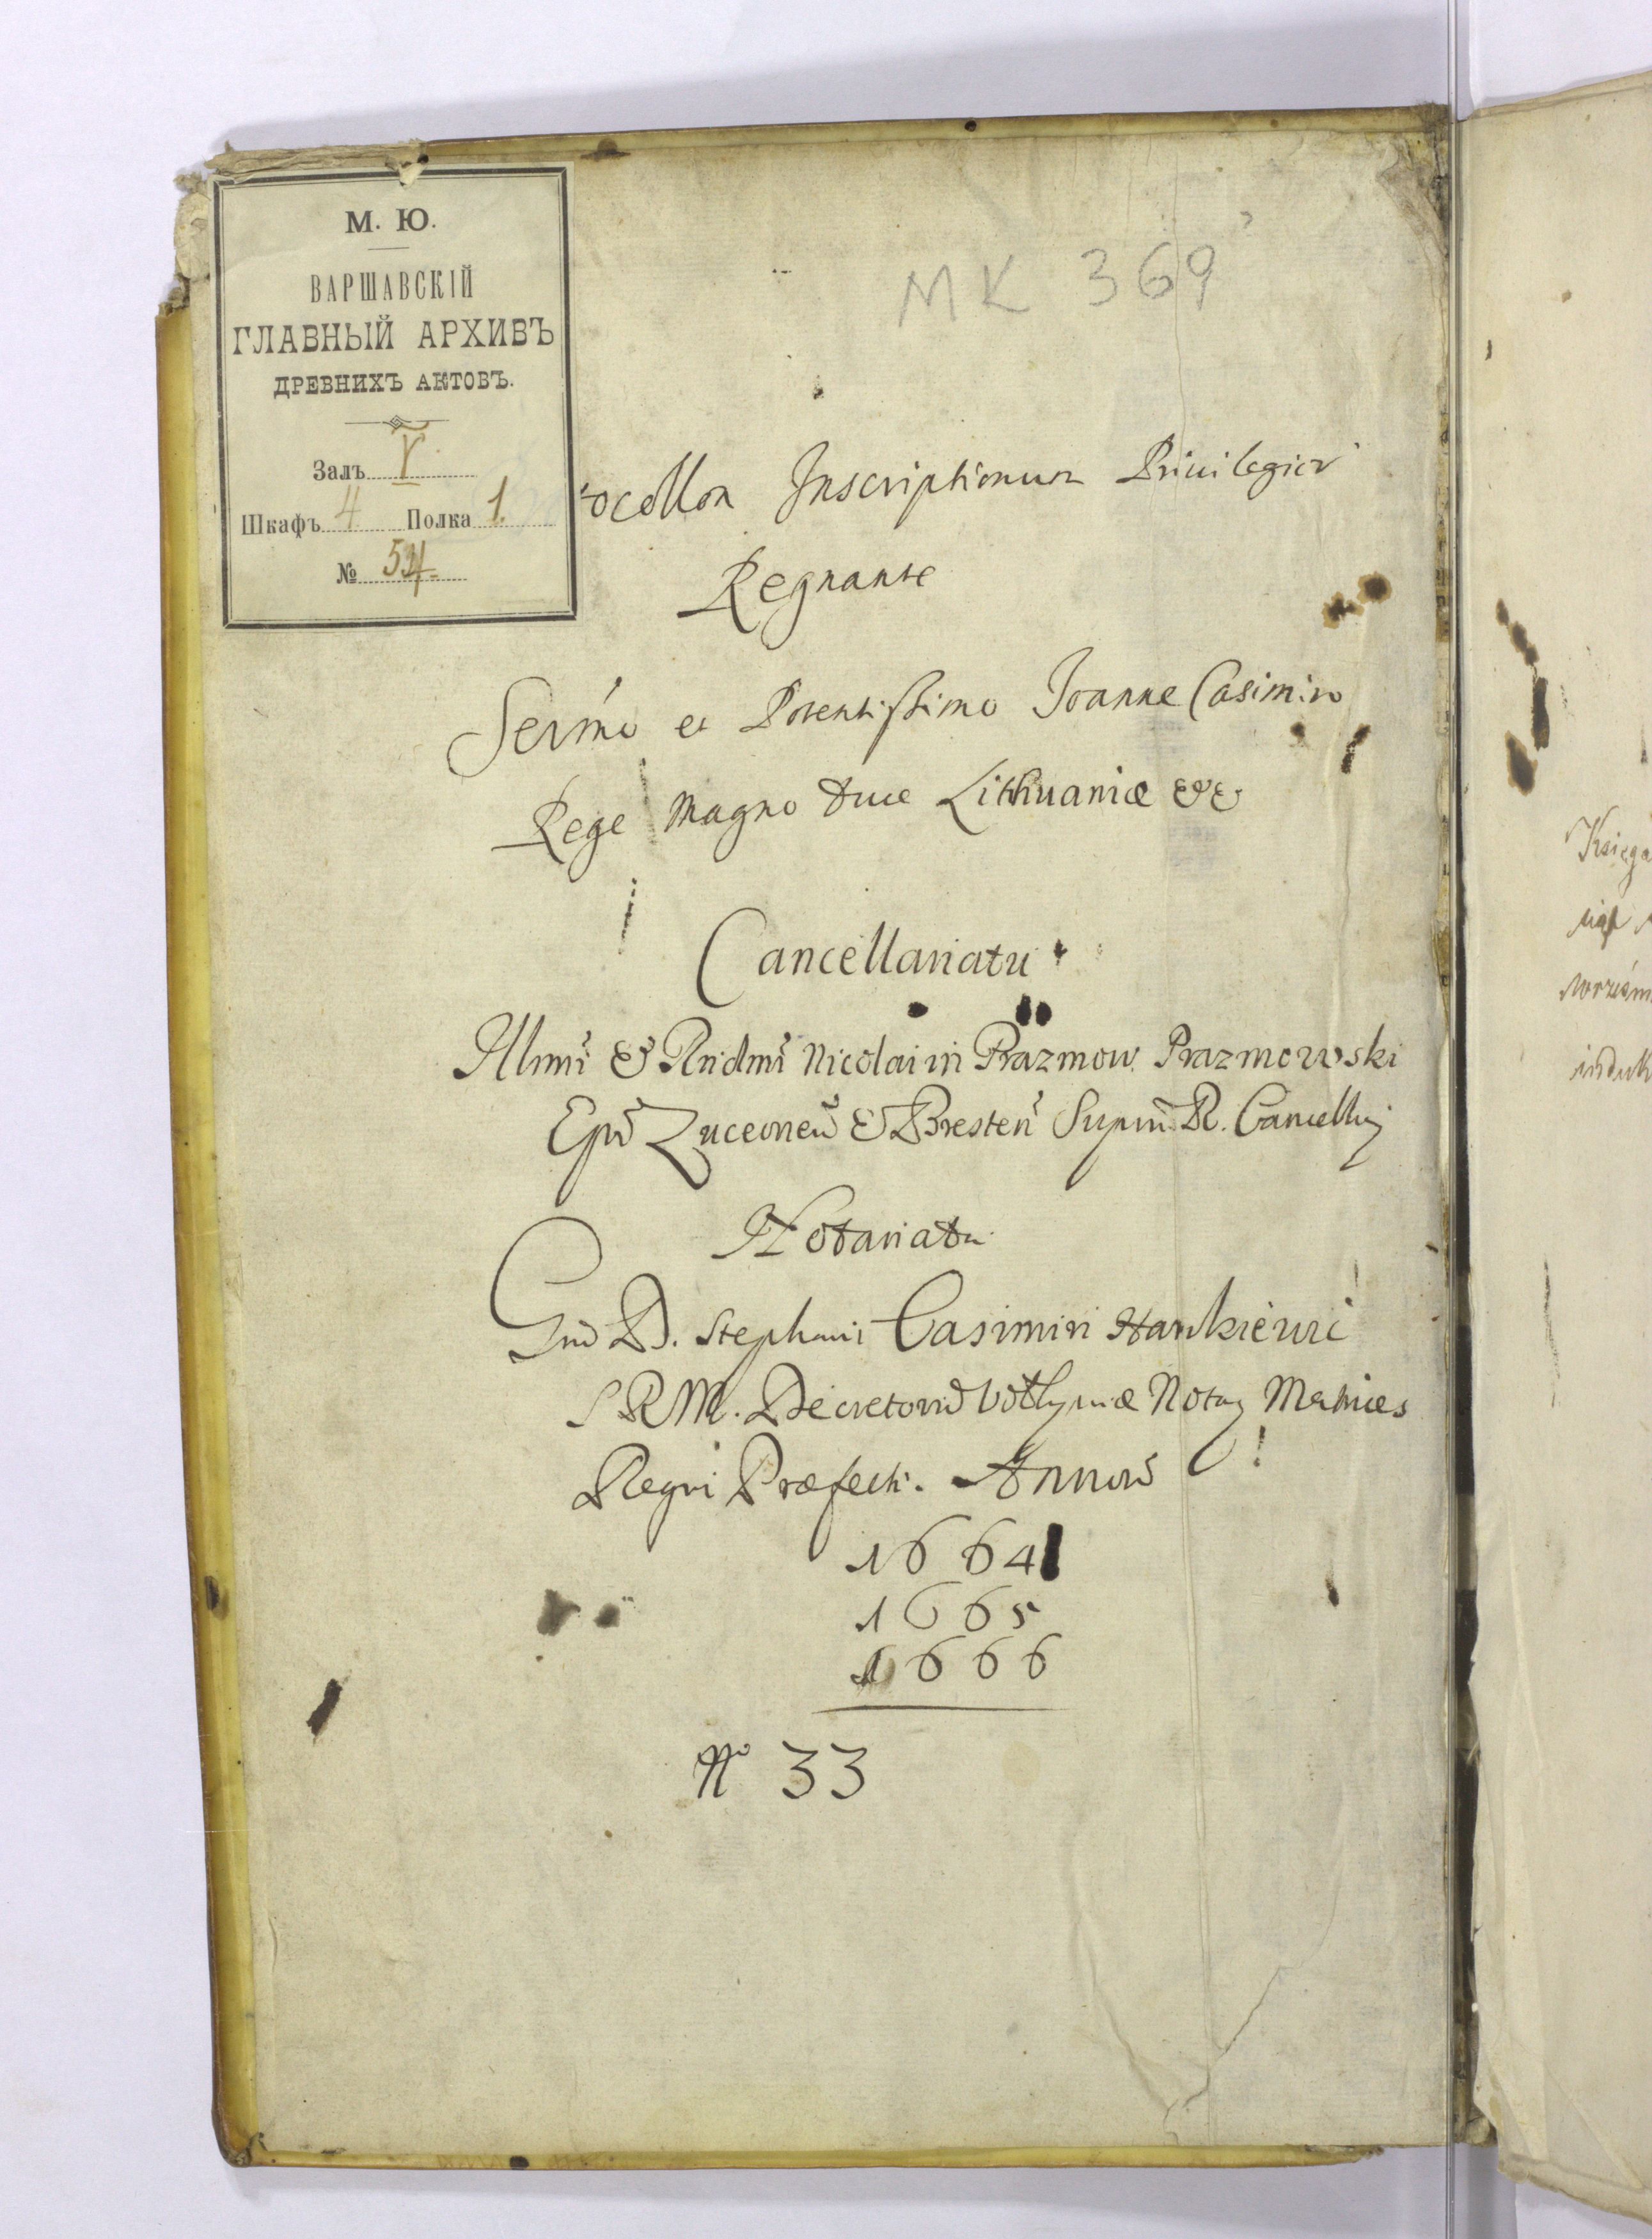 М. Ю.
ВАРШАВСКІЙ
ГЛАВНЫЙ АРХИВЪ
ДРЕВНИХЪ АКТОВЪ.
Залъ V.
Шкафъ 4 Полка 1.
№ 54
MK 369
ocollon Inscriptionum Priuilegior
Regnante
Sermo et Potentissimo Joanne Casimiro
Rege Magno Duce Lithuaniæ &&
Cancellariatu
Illmi & Rndmi Nicolai in Prazmow Prazmowski
Epi Luceorien & Bresten Suprm R. Cancellrij
Notariatu
Gnd D. Stephani Casimiri Hankiewic
S R M. Decretorū Vołhyniæ Notarj Metrices
Regni Præfecti. Annorū
1664
1665
1666
No 33
Księga